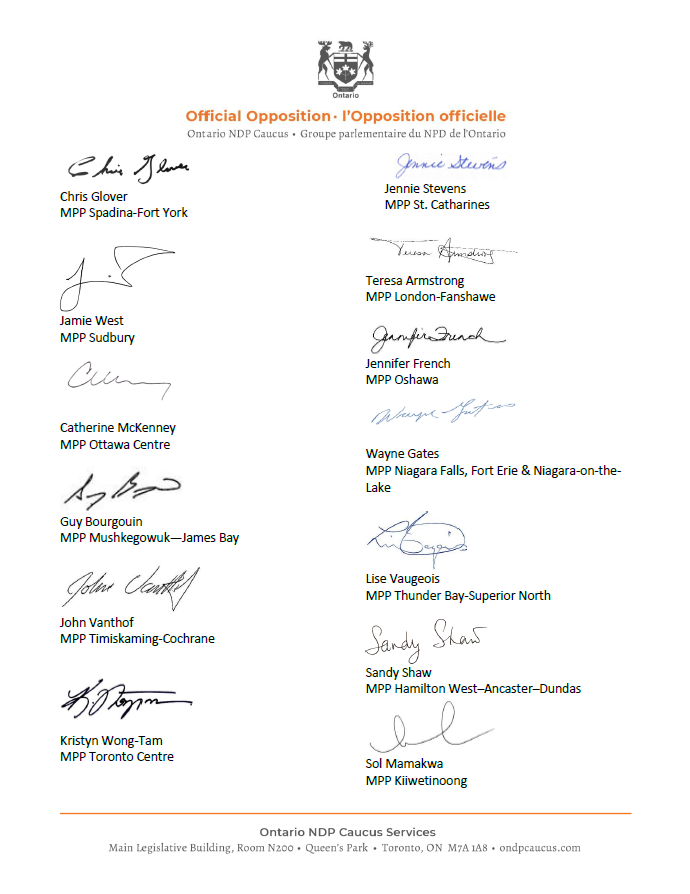 Ontario
Official Opposition · l'Opposition officielle
Ontario NDP Caucus • Groupe parlementaire du NPD de l'Ontario
Chris Glover
Chris Glover
MPP Spadina-Fort York
Jamie West
MPP Sudbury
Catherine McKenney
MPP Ottawa Centre
Guy Bourgouin
MPP Mushkegowuk—James Bay
John Vanthof
John Vanthof
MPP Timiskaming-Cochrane
Kristyn Wong-Tam
MPP Toronto Centre
Jennie Stevens
Jennie Stevens
MPP St. Catharines
Teresa Armstrong
Teresa Armstrong
MPP London-Fanshawe
Jennifer French
Jennifer French
MPP Oshawa
Wayne Gates
MPP Niagara Falls, Fort Erie & Niagara-on-the-
Lake
Lise Vaugeois
MPP Thunder Bay-Superior North
Sandy Shaw
Sandy Shaw
MPP Hamilton West–Ancaster–Dundas
Sol Mamakwa
MPP Kiiwetinoong
Ontario NDP Caucus Services
Main Legislative Building, Room N200 • Queen's Park • Toronto, ON M7A 1A8 • ondpcaucus.com